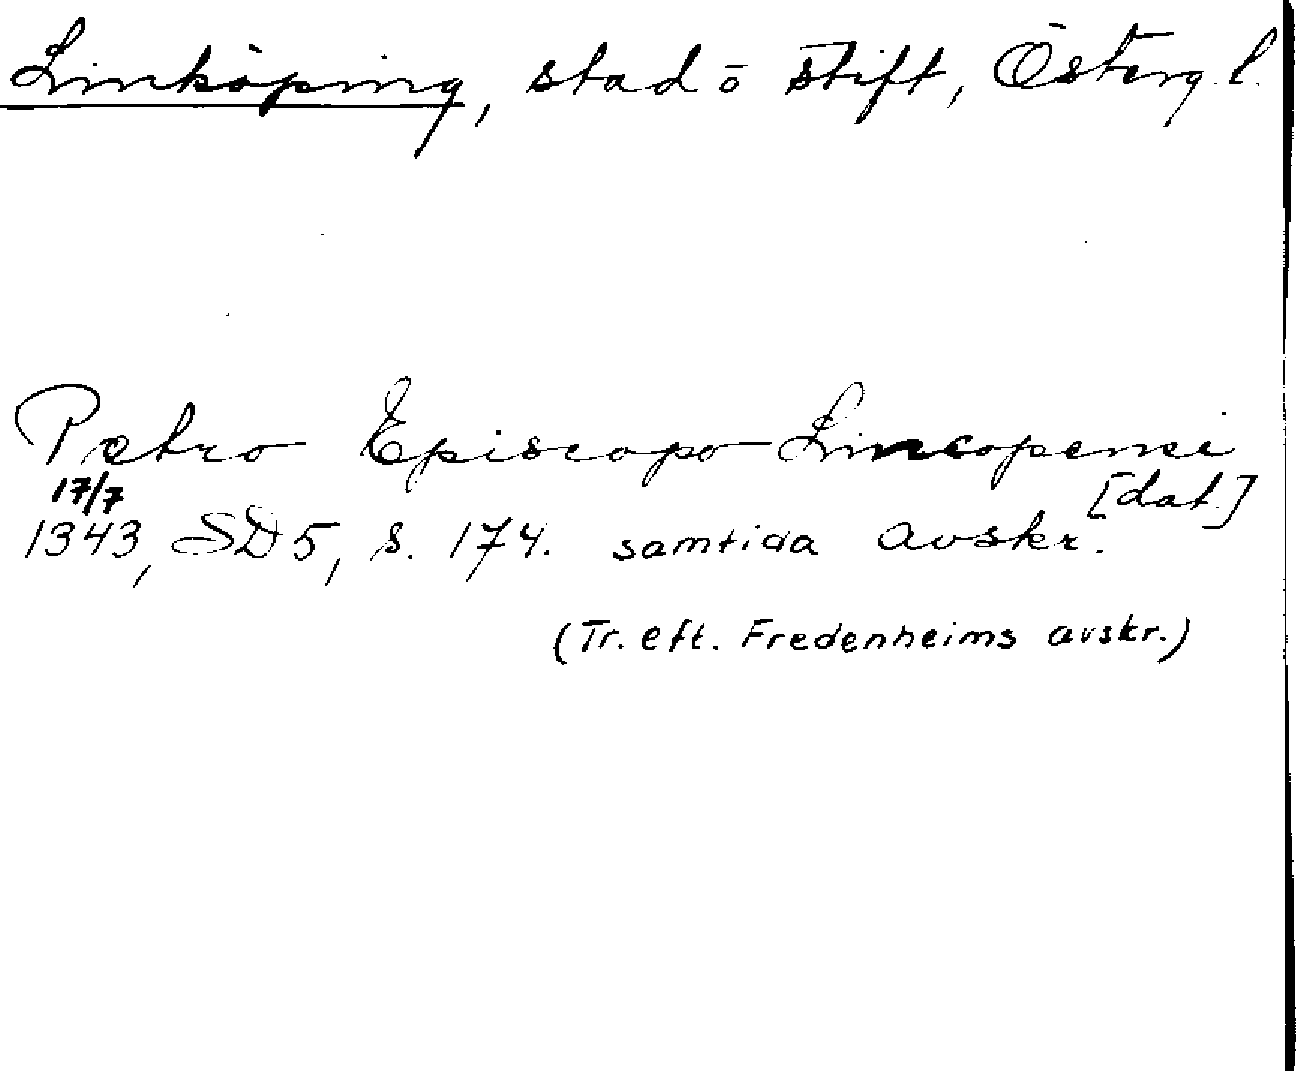 Linköping, stad o stift, Österg.l.
Petro Episcopo Lincopensi
[dat.]
17/7
1343, SD 5, s. 174. samtida avskr.
(Tr. eft. Fredenheims avskr.)